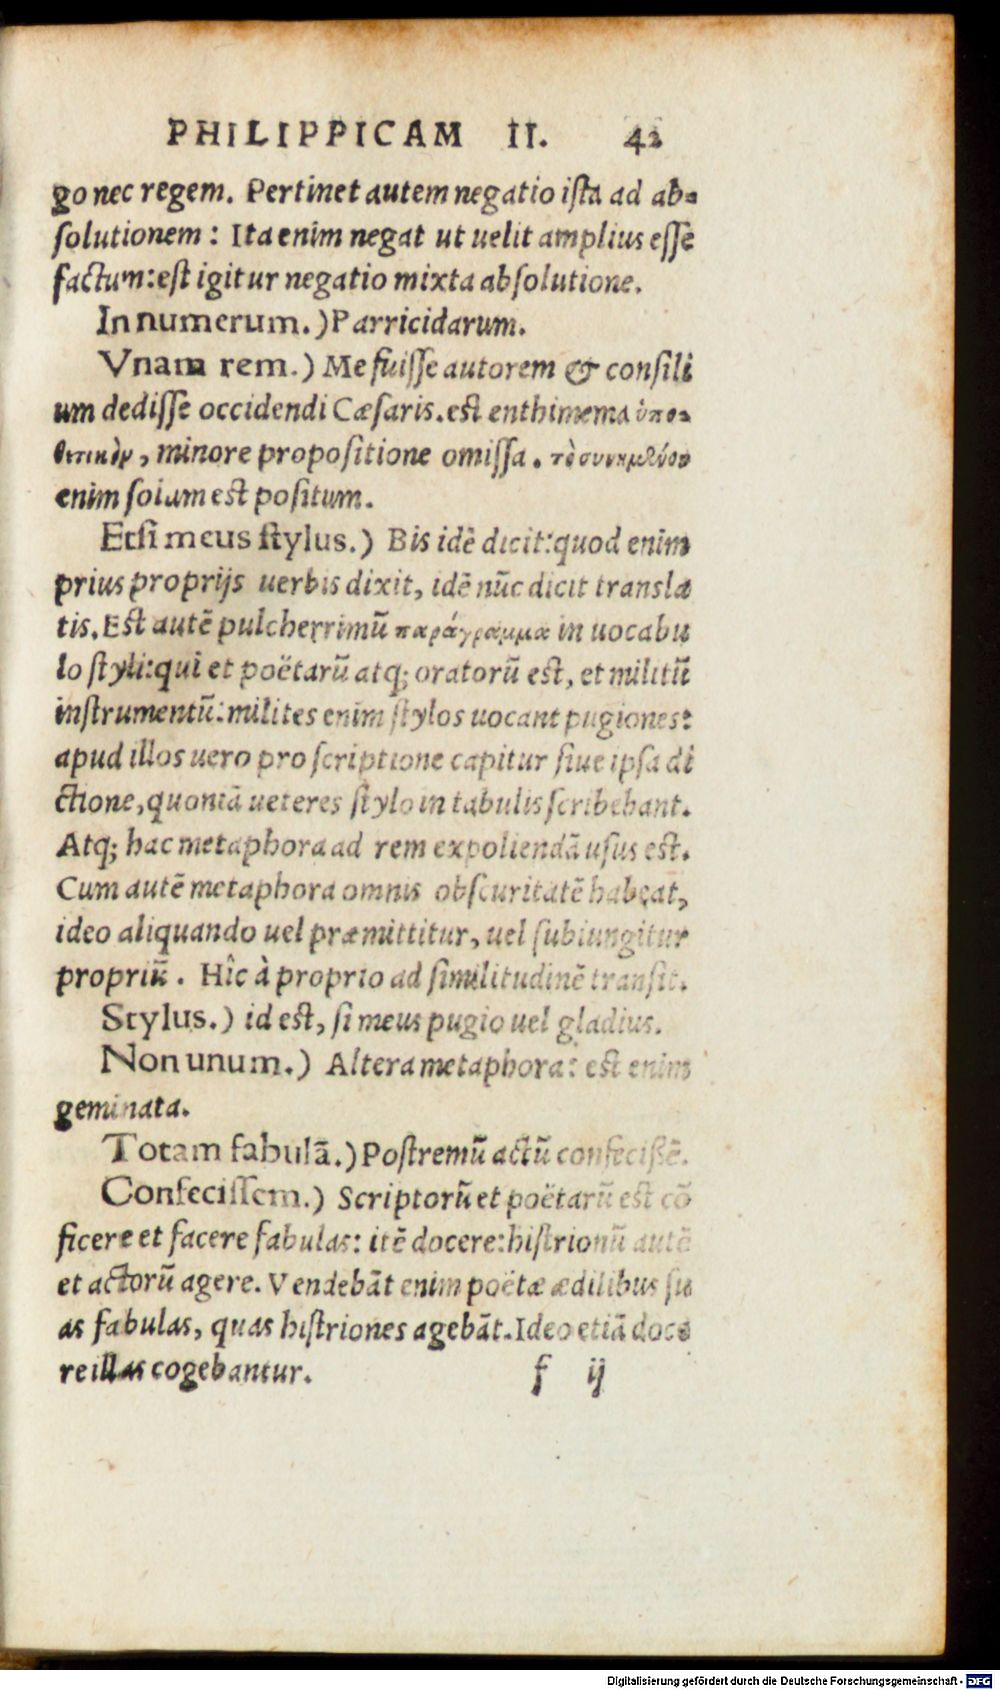 PHILIPPICAM II. 42
go nec regem. Pertinet autem negatio ista ad ab-
solutionem: Ita enim negat ut uelit amplius esse
factum: est igitur negatio mixta absolutione.
In numerum.) Parricidarum.
Vnam rem.) Me fuisse autorem & consili
um dedisse occidendi Cæsaris. est enthimema ὑπο-
θετικὸν, minore propositione omissa. τὸ συνημμένον
enim solum est positum.
Etsi meus stylus.) Bis idē dicit: quod enim
prius proprijs uerbis dixit, idē nūc dicit transla
tis. Est autē pulcherrimū παράγραμμα in uocabu
lo styli: qui et poëtarū atq; oratorū est, et militū
instrumentū: milites enim stylos uocant pugiones:
apud illos uero pro scriptione capitur siue ipsa di
ctione, quoniā ueteres stylo in tabulis scribebant.
Atq; hac metaphora ad rem expoliendā usus est.
Cum autē metaphora omnis obscuritatē habeat,
ideo aliquando uel præmittitur, uel subiungitur
propriū. Hîc à proprio ad similitudinē transit.
Stylus.) id est, si meus pugio uel gladius.
Non unum.) Altera metaphora: est enim
geminata.
Totam fabulā.) Postremū actū confecissē.
Confecissem.) Scriptorū et poëtarū est cō
ficere et facere fabulas: itē docere: histrionū autē
et actorū agere. Vendebāt enim poëtæ ædilibus su
as fabulas, quas histriones agebāt. Ideo etiā doce
re illas cogebantur. f ij
Digitalisierung gefördert durch die Deutsche Forschungsgemeinschaft - DFG